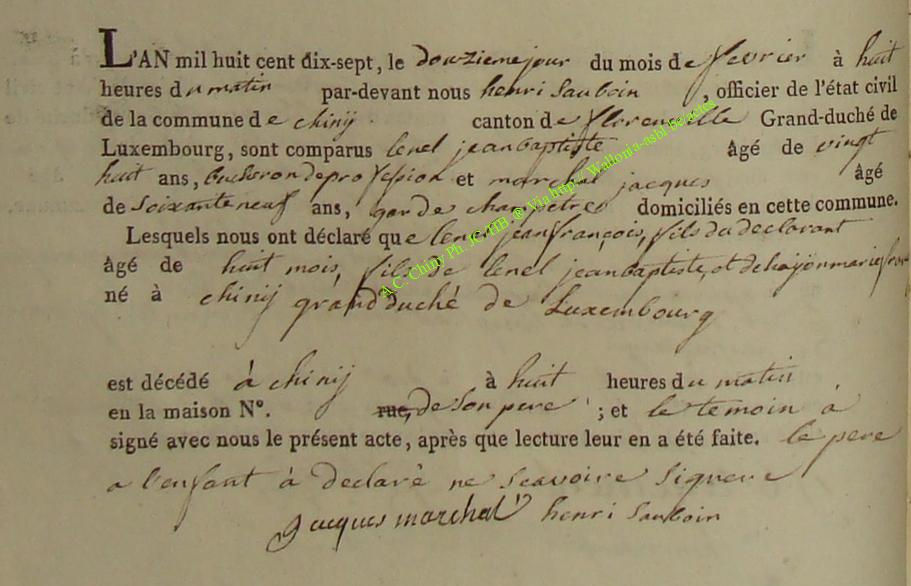 L'AN mil huit cent dix-sept, le douzieme jour du mois de fevrier à huit
heures du matin par-devant nous henri Sauboin, officier de l'état civil
de la commune de chinij canton de florenville Grand-duché de
Luxembourg, sont comparus lenel jean baptiste âgé de vingt
huit ans, bucheron de profession et marchal jacques âgé
de Soixante neuf ans, garde champetre domiciliés en cette commune.
Lesquels nous ont déclaré que lenel jean françois, fils du declarant
âgé de huit mois, fils de lenel jean baptiste, et de hayon marie
né à chinij grand duché de Luxembourg
est décédé à chinij à huit heures du matin
en la maison N°. rue, de Son pere ; et le temoin à
signé avec nous le présent acte, après que lecture leur en a été faite. le pere
a l'enfant à declarè ne scavoire signere
jacques marchal henri Sauboin
A.C. Chiny Ph. JC HB ® Via http://Wallonia-asbl.be/actes